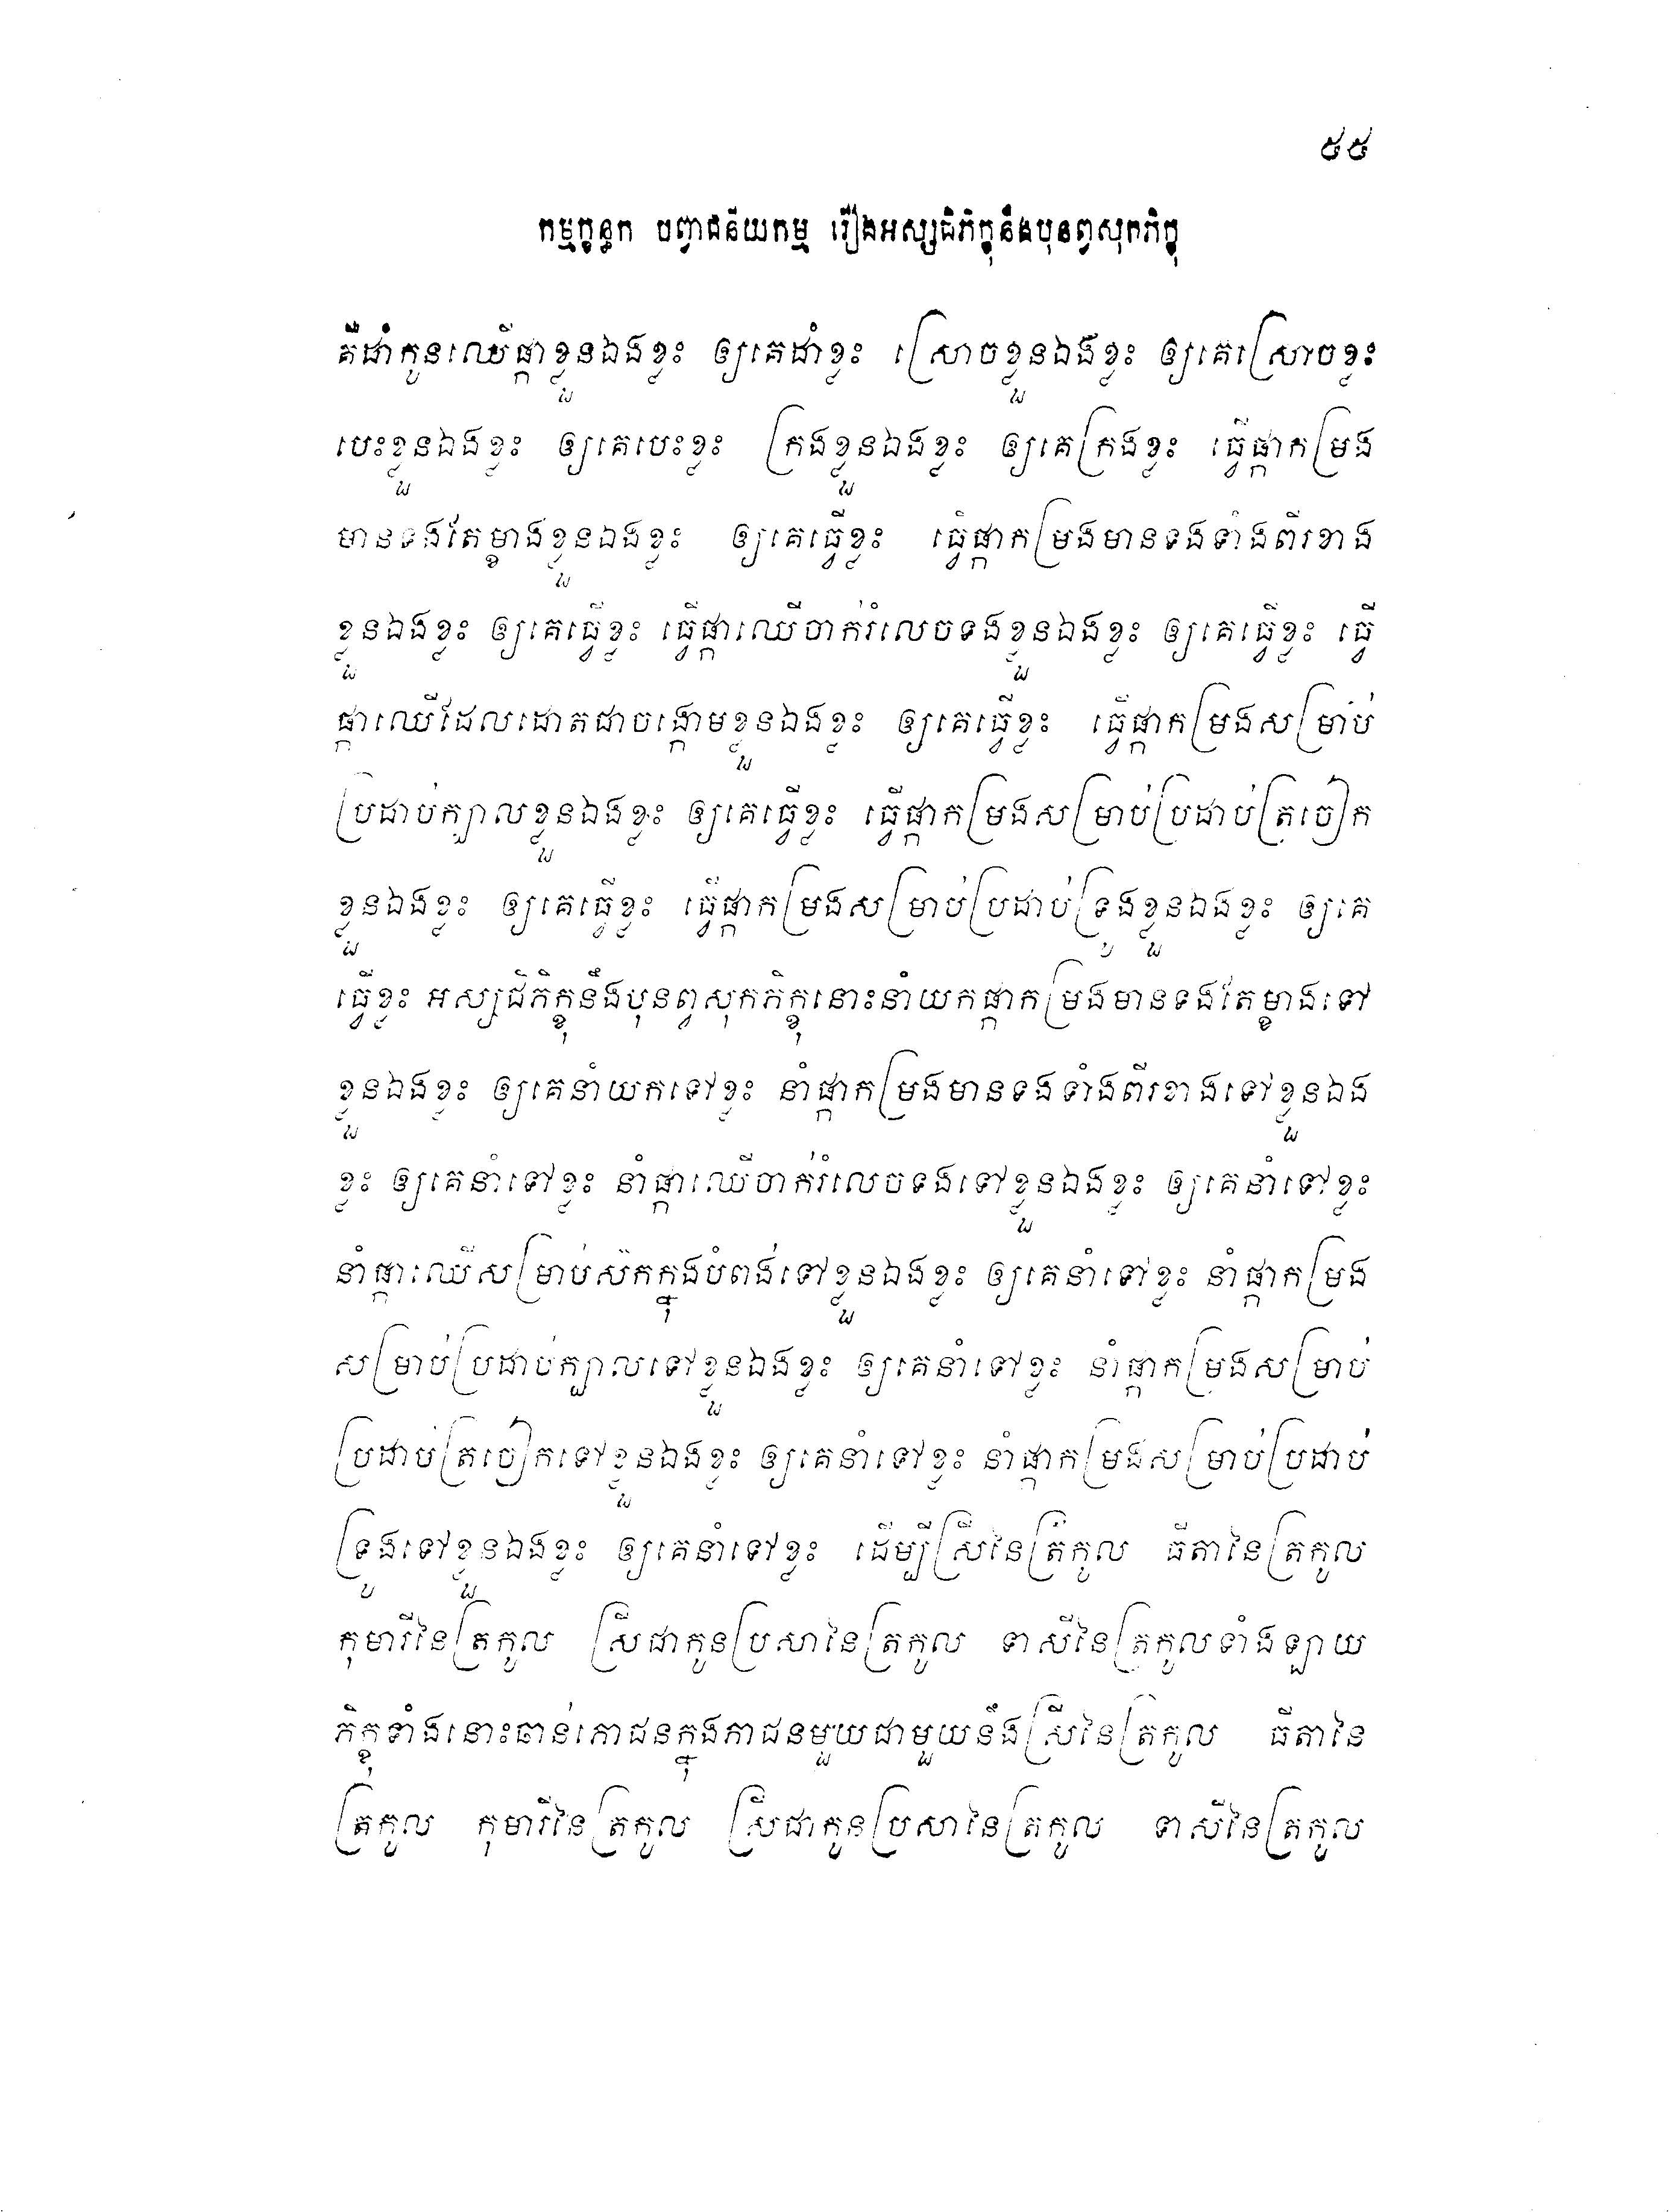 ៥៥
កម្មក្ខន្ធក បញ្ចាជនីយកម្ម រឿងអស្សជិភិក្ខុនឹងបុនព្វសុកភិក្ខុ
គឺដាំកូនឈើផ្កាខ្លួនឯងខ្លះ ឲ្យគេដាំខ្លះ ស្រោចខ្លួនឯងខ្លះ ឲ្យគេស្រោចខ្លះ
បេះខ្លួនឯងខ្លះ ឲ្យគេបេះខ្លះ ក្រងខ្លួនឯងខ្លះ ឲ្យគេក្រងខ្លះ ធ្វើផ្កាកម្រង
មានទងតែម្ខាងខ្លួនឯងខ្លះ ឲ្យគេធ្វើខ្លះ ធ្វើផ្កាកម្រងមានទងទាំងពីរខាង
ខ្លួនឯងខ្លះ ឲ្យគេធ្វើខ្លះ ធ្វើផ្កាឈើចាក់រំលេចទងខ្លួនឯងខ្លះ ឲ្យគេធ្វើខ្លះ ធ្វើ
ផ្កាឈើដែលដោតជាចង្កោមខ្លួនឯងខ្លះ ឲ្យគេធ្វើខ្លះ ធ្វើផ្កាកម្រងសម្រាប់
ប្រដាប់ក្បាលខ្លួនឯងខ្លះ ឲ្យគេធ្វើខ្លះ ធ្វើផ្កាកម្រងសម្រាប់ប្រដាប់ត្រចៀក
ខ្លួនឯងខ្លះ ឲ្យគេធ្វើខ្លះ ធ្វើផ្កាកម្រងសម្រាប់ប្រដាប់ទ្រូងខ្លួនឯងខ្លះ ឲ្យគេ
ធ្វើខ្លះ អស្សជិភិក្ខុនឹងបុនព្វសុកភិក្ខុនោះនាំយកផ្កាកម្រងមានទងតែម្ខាងទៅ
ខ្លួនឯងខ្លះ ឲ្យគេនាំយកទៅខ្លះ នាំផ្កាកម្រងមានទងទាំងពីរខាងទៅខ្លួនឯង
ខ្លះ ឲ្យគេនាំទៅខ្លះ នាំផ្កាឈើចាក់រំលេចទងទៅខ្លួនឯងខ្លះ ឲ្យគេនាំទៅខ្លះ
នាំផ្កាឈើសម្រាប់ស៊កក្នុងបំពង់ទៅខ្លួនឯងខ្លះ ឲ្យគេនាំទៅខ្លះ នាំផ្កាកម្រង
សម្រាប់ប្រដាប់ក្បាលទៅខ្លួនឯងខ្លះ ឲ្យគេនាំទៅខ្លះ នាំផ្កាកម្រងសម្រាប់
ប្រដាប់ត្រចៀកទៅខ្លួនឯងខ្លះ ឲ្យគេនាំទៅខ្លះ នាំផ្កាកម្រងសម្រាប់ប្រដាប់
ទ្រូងទៅខ្លួនឯងខ្លះ ឲ្យគេនាំទៅខ្លះ ដើម្បីស្រីនៃត្រកូល ធីតានៃត្រកូល
កុមារីនៃត្រកូល ស្រីជាកូនប្រសានៃត្រកូល ទាសីនៃត្រកូលទាំងឡាយ
ភិក្ខុទាំងនោះឆាន់ភោជនក្នុងភាជនមួយជាមួយនឹងស្រីនៃត្រកូល ធីតានៃ
ត្រកូល កុមារីនៃត្រកូល ស្រីជាកូនប្រសានៃត្រកូល ទាសីនៃត្រកូល